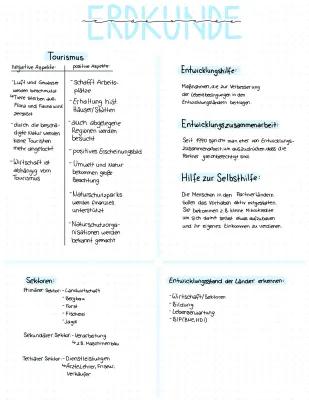 ERDKUNDE
Tourismus
negative Aspekte:
- Luft und Gewässer
werden verschmutzt
→ Tiere sterben aus,
Flora und Fauna wird
zerstört
- durch die beschä-
digte Natur werden
keine Touristen
mehr angelockt
- Wirtschaft ist
abhängig vom
Tourismus
positive Aspekte:
- Schafft Arbeits-
plätze
- Erhaltung hist.
Häuser/Stätten
- auch abgelegene
Regionen werden
besucht
- positives Erscheinungsbild
- Umwelt und Natur
bekommen große
Beachtung
- Naturschutzparks
werden finanziell
unterstützt
- Naturschutzorga-
nisationen werden
bekannt gemacht
Entwicklungshilfe:
Maßnahmen, die zur Verbesserung
der Lebensbedingungen in den
Entwicklungsländern beitragen.
Entwicklungszusammenarbeit:
Seit 1990 spricht man eher von Entwicklungs-
zusammenarbeit, um auszudrücken, dass die
Partner gleichberechtigt sind.
Hilfe zur Selbsthilfe:
Die Menschen in den Partnerländern
sollen das Vorhaben aktiv mitgestalten.
Sie bekommen z.B. kleine Mikrokredite
um sich damit selbst etwas aufzubauen
und ihr eigenes Einkommen zu verdienen.
Sektoren:
Primärer Sektor: - Landwirtschaft
- Bergbau
- Forst
- Fischerei
- Jagd
Sekundärer Sektor: - Verarbeitung
↳ z.B. Maschinenbau
Tertiärer Sektor: - Dienstleistungen
↳ Ärzte, Lehrer, Friseur,
Verkäufer
Entwicklungsstand der Länder erkennen:
- Wirtschaft/Sektoren
- Bildung
- Lebenserwartung
- BIP (BNE, HDI)